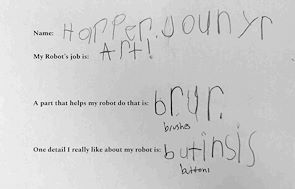 Name: Harper.Jounyr
My Robot's job is: Art!
A part that helps my robot do that is: brur.
brushes
One detail I really like about my robot is: butinsis
buttons